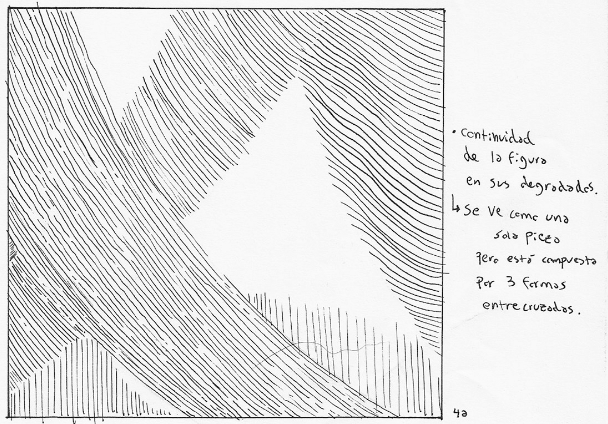 • continuidad
de la figura
en sus degradados.
↳ se ve como una
sola pieza
pero está compuesta
por 3 formas
entrecruzadas.
4a